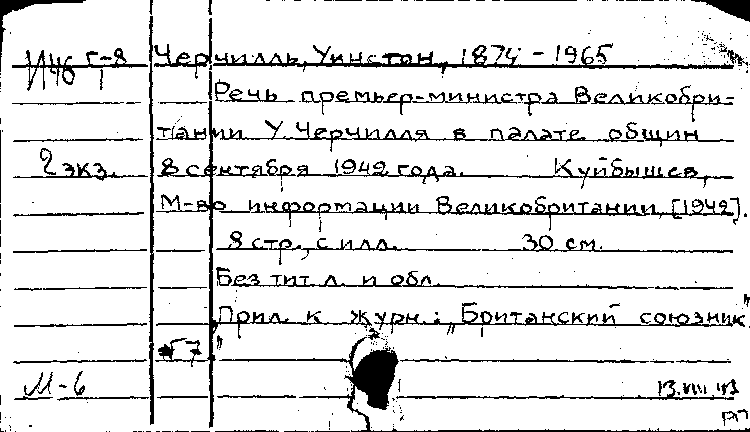 И46 Г-8 Черчилль, Уинстон, 1874 - 1965
1
Речь премьер-министра Великобри-
тании У. Черчилля в палате общин
2 экз. 8 сентября 1942 года. Куйбышев,
М-во информации Великобритании, [1942].
8 стр., с илл. 30 см.
Без тит. л. и обл.
Прил. к журн.: „Британский союзник"
Г7
М-6 13.VIII.43